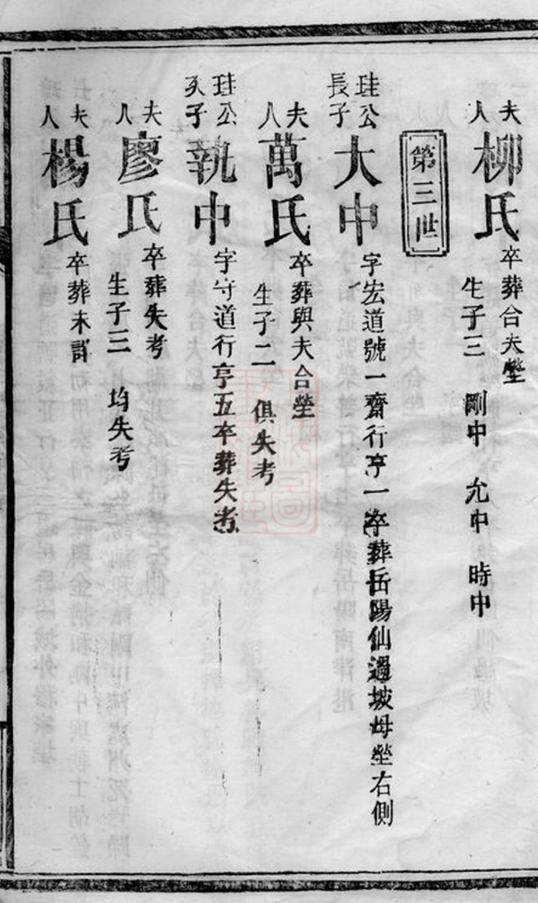 夫人 柳氏 卒葬合夫塋
生子三 剛中 允中 時中
第三世
珪公長子 大中 字宏道號一齋行亨一卒葬岳陽仙過坡母塋右側
夫人 萬氏 卒葬與夫合塋
生子二 俱失考
珪公次子 執中 字守道行亨五卒葬失考
夫人 廖氏 卒葬失考
生子三 均失考
夫人 楊氏 卒葬未詳